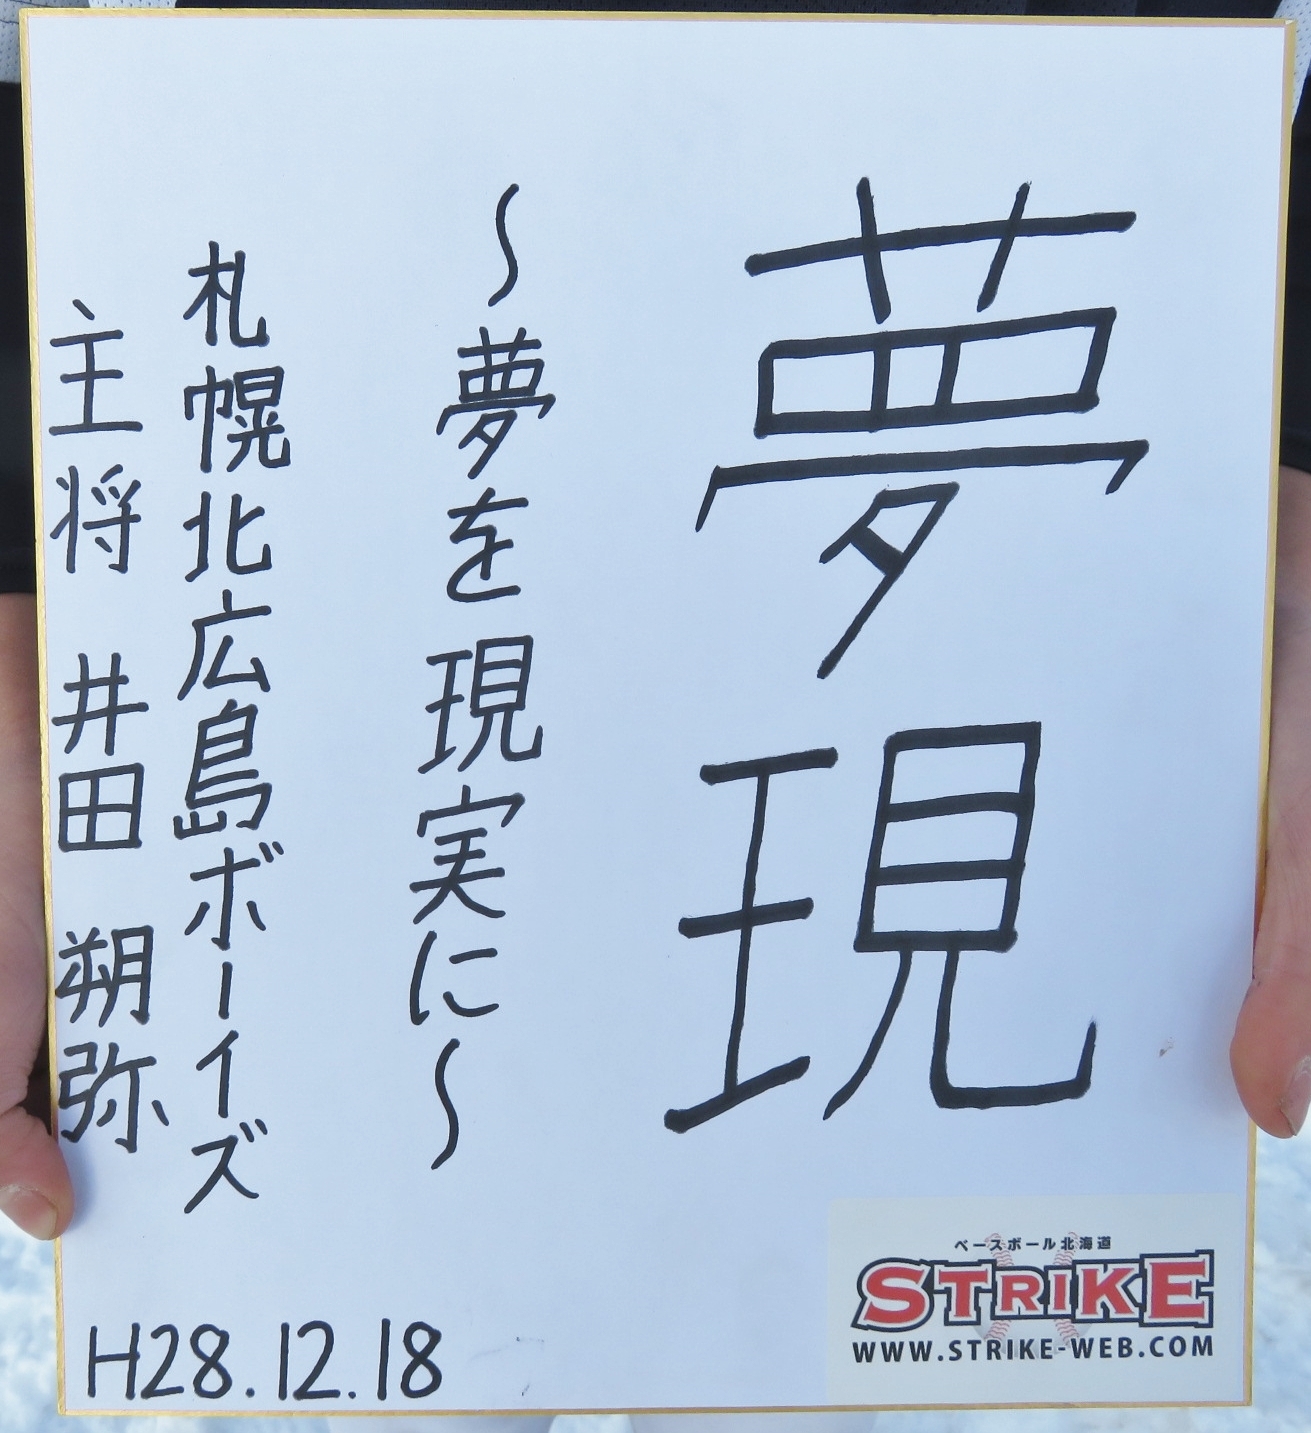 夢現
〜夢を現実に〜
札幌北広島ボーイズ
主将 井田 朔弥
H28.12.18
ベースボール北海道
STRIKE
WWW.STRIKE-WEB.COM